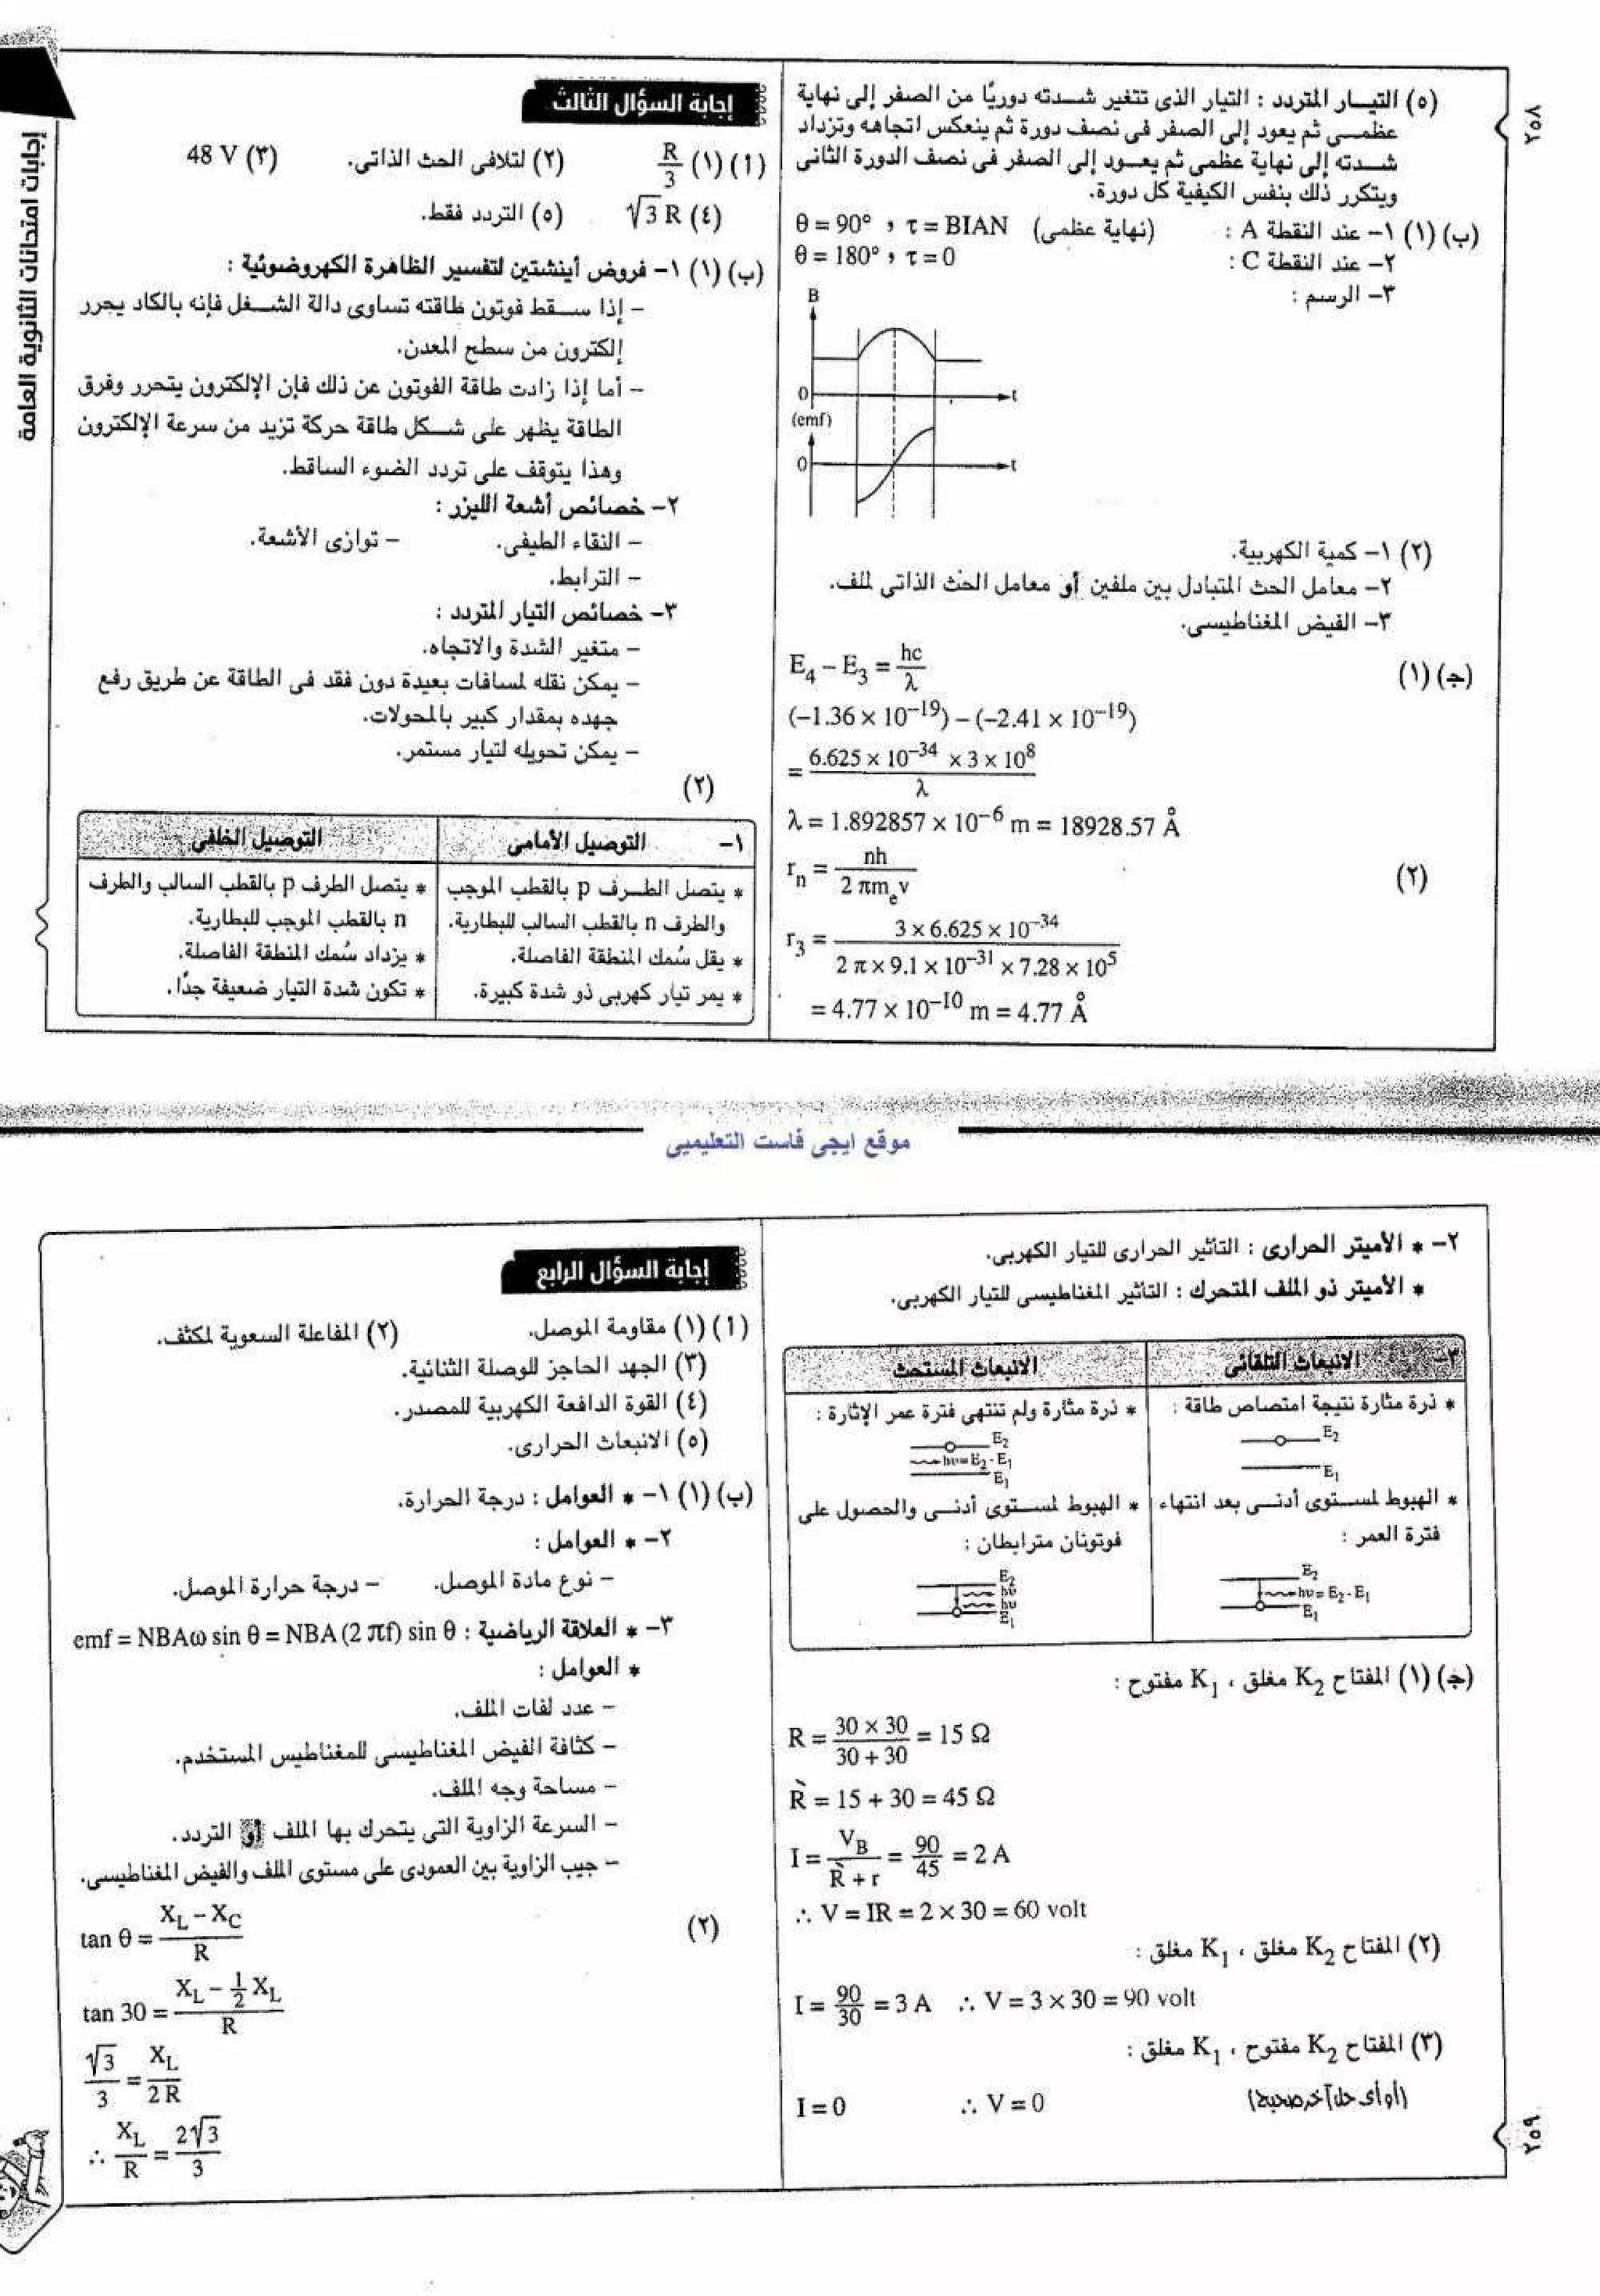 ٢٥٨
إجابات امتحانات الثانوية العامة
(٥) التيار المتردد : التيار الذى تتغير شدته دوريًا من الصفر إلى نهاية
عظمى ثم يعود إلى الصفر فى نصف دورة ثم ينعكس اتجاهه وتزداد
شدته إلى نهاية عظمى ثم يعود إلى الصفر فى نصف الدورة الثانى
ويتكرر ذلك بنفس الكيفية كل دورة.
(ب) (١) ١- عند النقطة A : (نهاية عظمى) θ = 90° , τ = BIAN
٢- عند النقطة C : θ = 180° , τ = 0
٣- الرسم :
B
0 t
(emf)
0 t
(٢) ١- كمية الكهربية.
٢- معامل الحث المتبادل بين ملفين أو معامل الحث الذاتى لملف.
٣- الفيض المغناطيسى.
(جـ) (١) E₄ − E₃ = hc/λ
(−1.36 × 10⁻¹⁹) − (−2.41 × 10⁻¹⁹)
= (6.625 × 10⁻³⁴ × 3 × 10⁸)/λ
λ = 1.892857 × 10⁻⁶ m = 18928.57 Å
(٢) rₙ = nh/(2 πmₑv)
r₃ = (3 × 6.625 × 10⁻³⁴)/(2 π × 9.1 × 10⁻³¹ × 7.28 × 10⁵)
= 4.77 × 10⁻¹⁰ m = 4.77 Å
إجابة السؤال الثالث
(أ) (١) R/3 (٢) لتلافى الحث الذاتى. (٣) 48 V
(٤) √3 R (٥) التردد فقط.
(ب) (١) ١- فروض أينشتين لتفسير الظاهرة الكهروضوئية :
– إذا سقط فوتون طاقته تساوى دالة الشغل فإنه بالكاد يحرر
إلكترون من سطح المعدن.
– أما إذا زادت طاقة الفوتون عن ذلك فإن الإلكترون يتحرر وفرق
الطاقة يظهر على شكل طاقة حركة تزيد من سرعة الإلكترون
وهذا يتوقف على تردد الضوء الساقط.
٢- خصائص أشعة الليزر :
– النقاء الطيفى. – توازى الأشعة.
– الترابط.
٣- خصائص التيار المتردد :
– متغير الشدة والاتجاه.
– يمكن نقله لمسافات بعيدة دون فقد فى الطاقة عن طريق رفع
جهده بمقدار كبير بالمحولات.
– يمكن تحويله لتيار مستمر.
(٢)
١- التوصيل الأمامى التوصيل الخلفى
* يتصل الطرف p بالقطب الموجب * يتصل الطرف p بالقطب السالب والطرف
والطرف n بالقطب السالب للبطارية. n بالقطب الموجب للبطارية.
* يقل سُمك المنطقة الفاصلة. * يزداد سُمك المنطقة الفاصلة.
* يمر تيار كهربى ذو شدة كبيرة. * تكون شدة التيار ضعيفة جدًا.
موقع ايجى فاست التعليميى
٢- * الأميتر الحرارى : التأثير الحرارى للتيار الكهربى.
* الأميتر ذو الملف المتحرك : التأثير المغناطيسى للتيار الكهربى.
٣- الانبعاث التلقائى الانبعاث المستحث
* ذرة مثارة نتيجة امتصاص طاقة : * ذرة مثارة ولم تنتهى فترة عمر الإثارة :
E₂ E₂
hυ=E₂-E₁
E₁ E₁
* الهبوط لمستوى أدنى بعد انتهاء * الهبوط لمستوى أدنى والحصول على
فترة العمر : فوتونان مترابطان :
E₂ E₂
hυ = E₂ - E₁ hυ
hυ
E₁ E₁
(جـ) (١) المفتاح K₂ مغلق ، K₁ مفتوح :
R = (30 × 30)/(30 + 30) = 15 Ω
R̀ = 15 + 30 = 45 Ω
I = V_B/(R̀ + r) = 90/45 = 2 A
∴ V = IR = 2 × 30 = 60 volt
(٢) المفتاح K₂ مغلق ، K₁ مغلق :
I = 90/30 = 3 A ∴ V = 3 × 30 = 90 volt
(٣) المفتاح K₂ مفتوح ، K₁ مغلق :
I = 0 ∴ V = 0 (أو أى حل آخر صحيح)
إجابة السؤال الرابع
(أ) (١) مقاومة الموصل. (٢) المفاعلة السعوية لمكثف.
(٣) الجهد الحاجز للوصلة الثنائية.
(٤) القوة الدافعة الكهربية للمصدر.
(٥) الانبعاث الحرارى.
(ب) (١) ١- * العوامل : درجة الحرارة.
٢- * العوامل :
– نوع مادة الموصل. – درجة حرارة الموصل.
٣- * العلاقة الرياضية : emf = NBAω sin θ = NBA (2 πf) sin θ
* العوامل :
– عدد لفات الملف.
– كثافة الفيض المغناطيسى للمغناطيس المستخدم.
– مساحة وجه الملف.
– السرعة الزاوية التى يتحرك بها الملف أو التردد.
– جيب الزاوية بين العمودى على مستوى الملف والفيض المغناطيسى.
(٢) tan θ = (X_L − X_C)/R
tan 30 = (X_L − ½ X_L)/R
√3/3 = X_L/2 R
∴ X_L/R = 2√3/3
٢٥٩